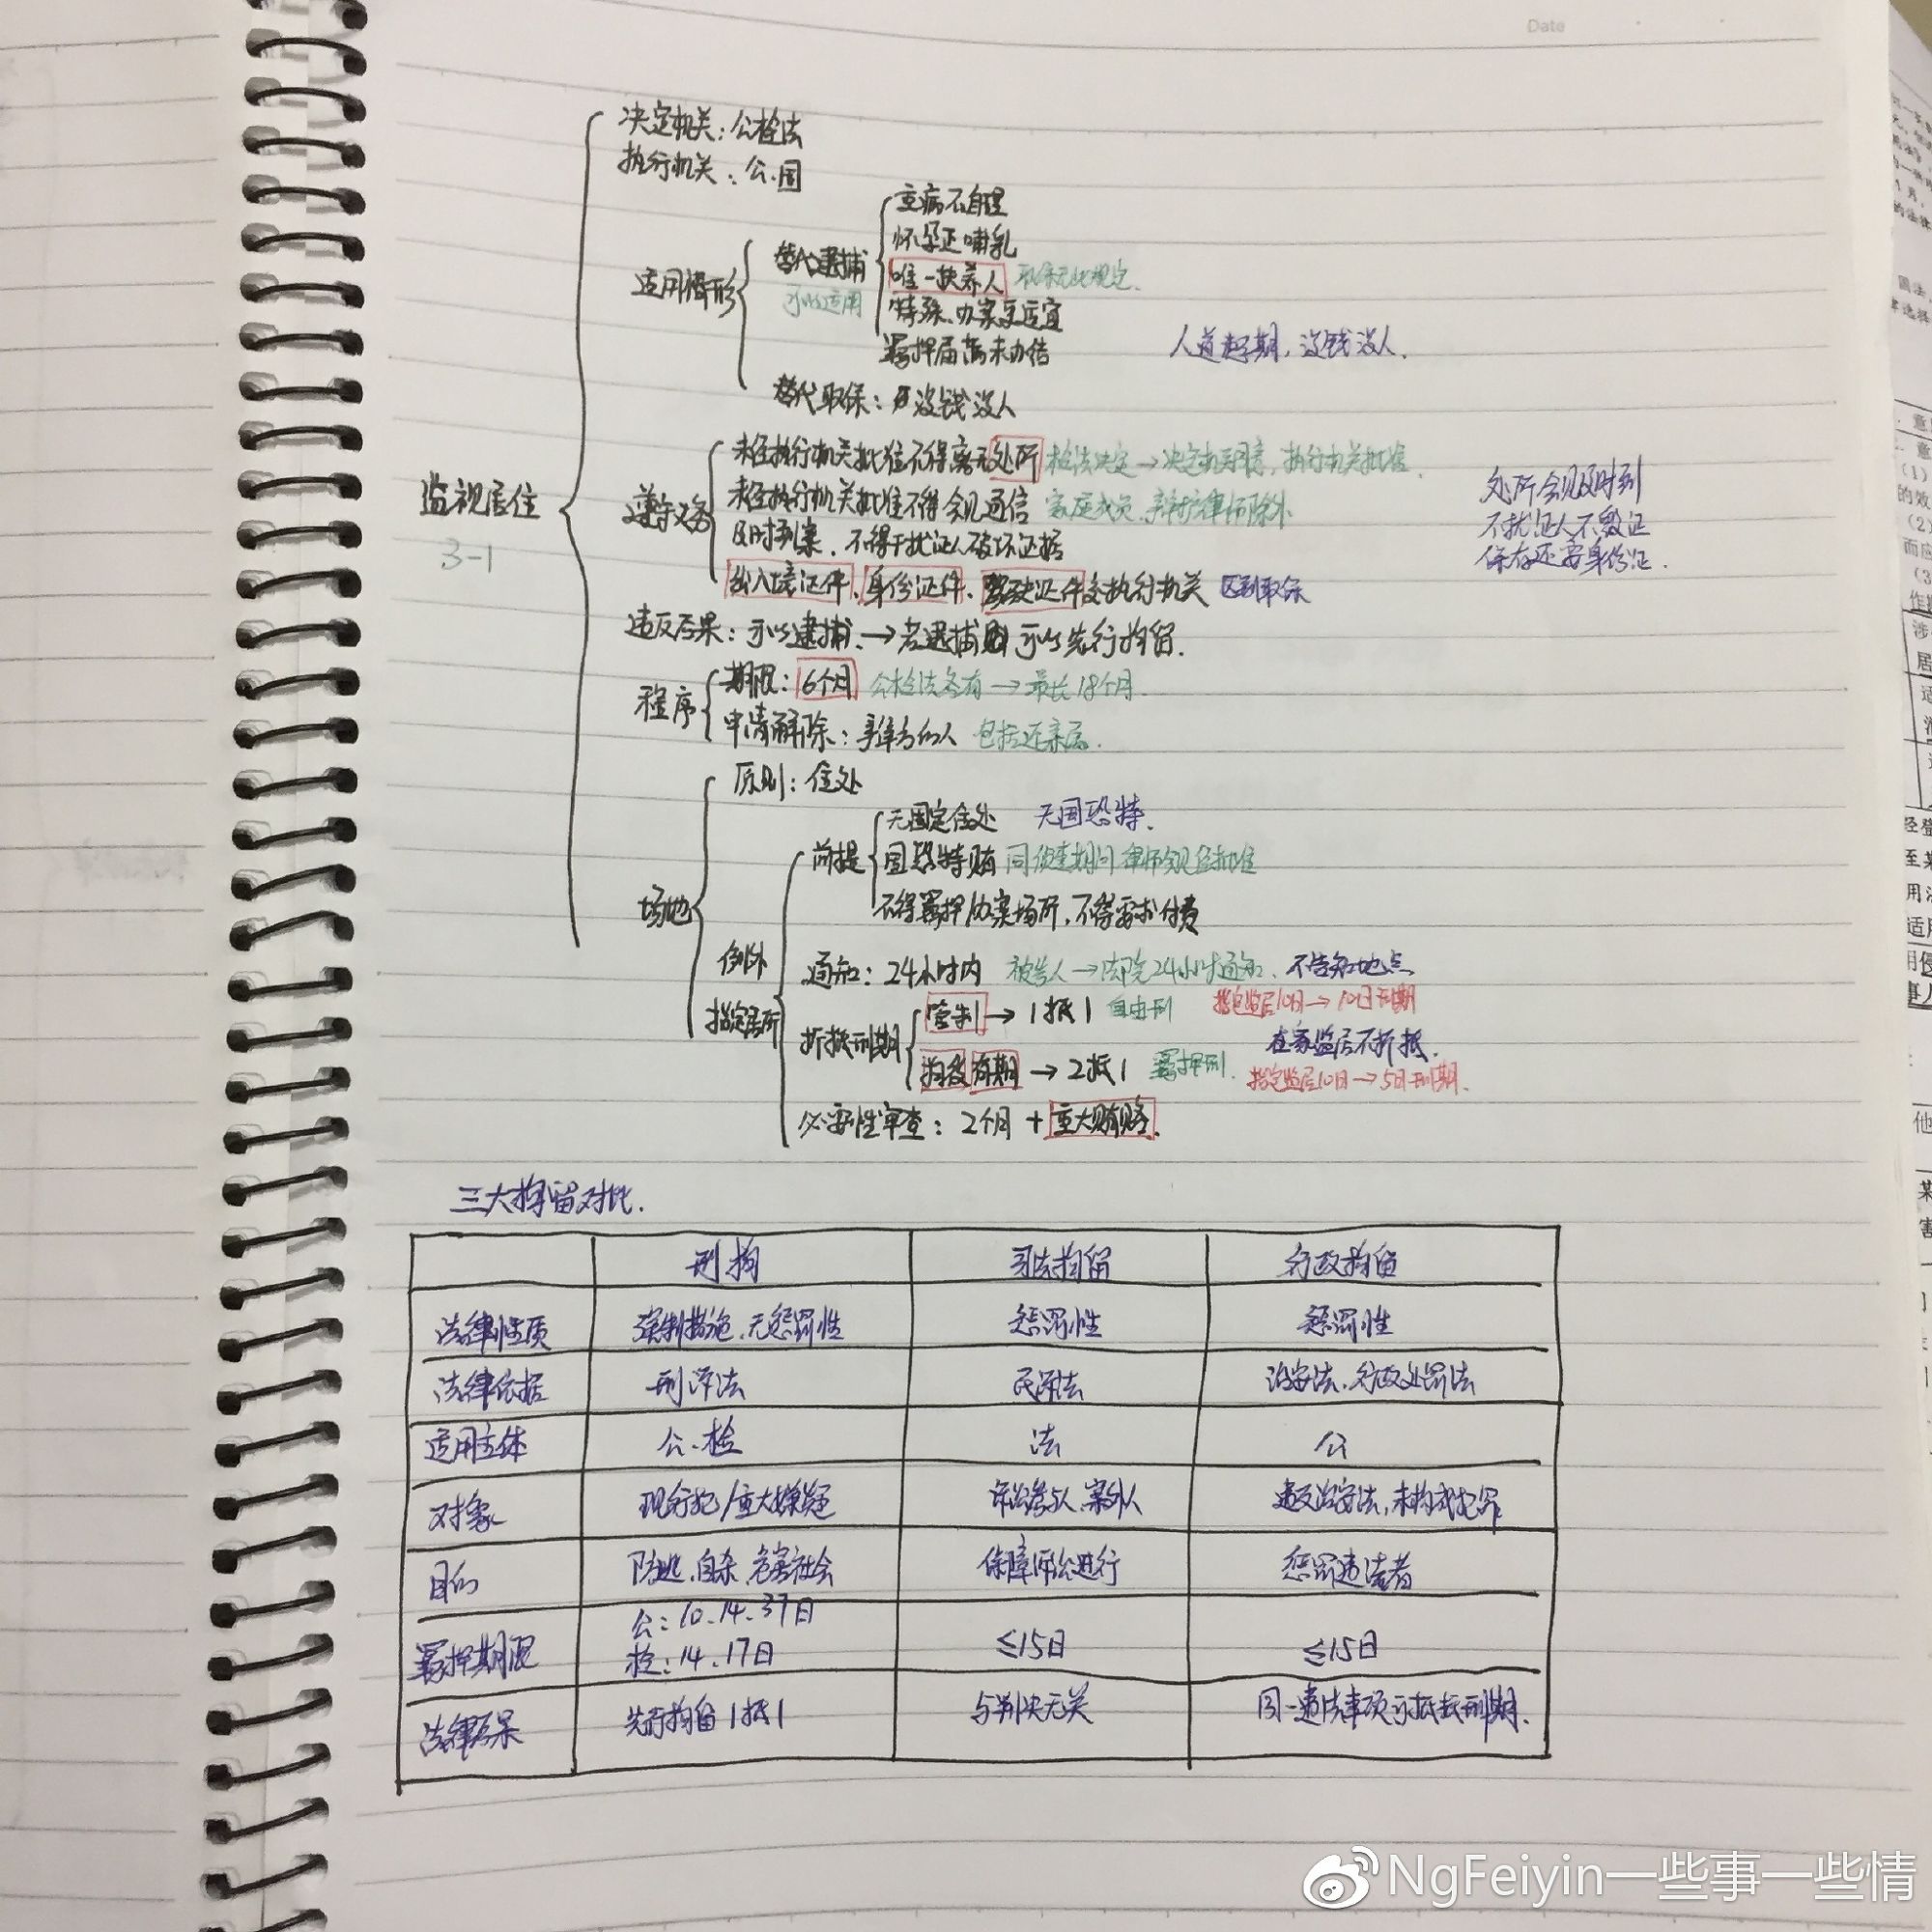 Date
决定机关：公检法
执行机关：公.国
重病不自理
怀孕正哺乳
替代逮捕
唯一扶养人 取保无此规定.
适用情形
可以适用
特殊、办案更适宜
羁押届满未办结
人道超期，没钱没人.
替代取保：没钱没人
未经执行机关批准不得离开处所 检法决定→决定机关同意，执行机关批准.
监视居住
3-1
遵守义务
未经执行机关批准不得会见通信 家庭成员、辩护律师除外
处所会见及时到
及时到案，不得干扰证人破坏证据
不扰证人不毁证
出入境证件、身份证件、驾驶证件交执行机关 区别取保
保存还要身份证.
违反后果：可以逮捕.→若逮捕则可以先行拘留.
程序
期限：6个月 公检法各有→最长18个月.
申请解除：辩方的人 包括近亲属.
原则：住处
无固定住处 无国恐特.
前提
国恐特贿 同侦查期间律师会见经批准
场地
不得羁押办案场所，不得要求付费
例外
指定居所
通知：24小时内 被告人→法院24小时通知. 不告知地点
管制→1抵1 自由刑 指定监居10日→10日刑期
折抵刑期
在家监居不折抵.
拘役有期→2抵1 羁押刑. 指定监居10日→5日刑期.
必要性审查：2个月+重大贿赂.
三大拘留对比.
刑拘 司法拘留 行政拘留
法律性质 强制措施.无惩罚性 惩罚性 惩罚性
法律依据 刑诉法 民诉法 治安法.行政处罚法
适用主体 公.检 法 公
对象 现行犯/重大嫌疑 诉讼参与人.案外人 违反治安法，未构成犯罪
目的 防逃.自杀.危害社会 保障诉讼进行 惩罚违法者
羁押期限 公：10.14.37日 ≤15日 ≤15日
检：14.17日
法律后果 先行拘留1抵1 与判决无关 同一违法事项可折抵刑期.
NgFeiyin一些事一些情